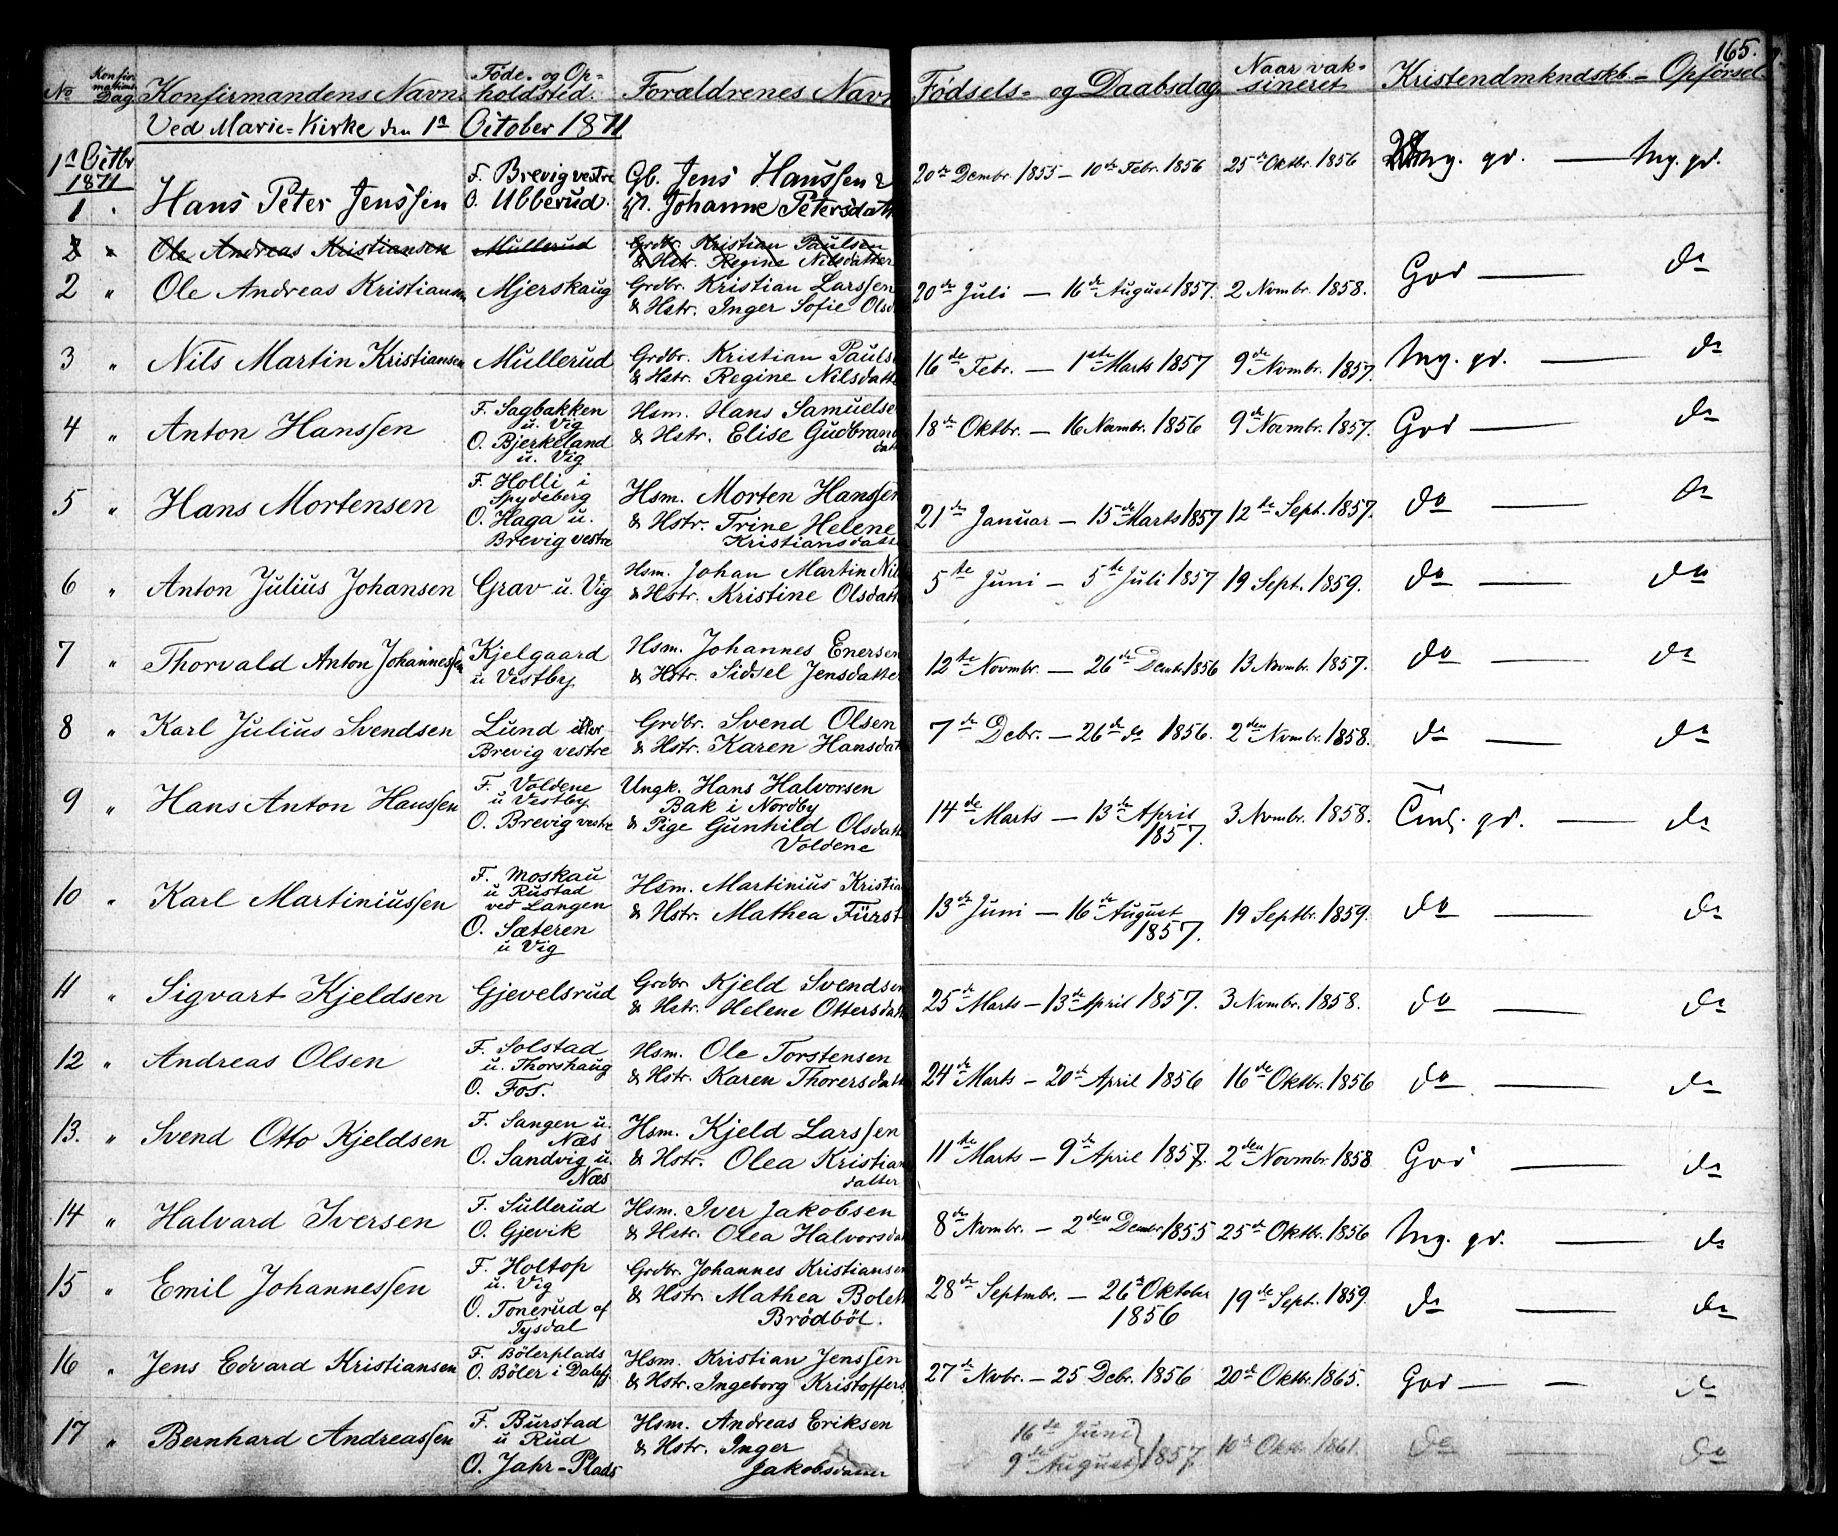 165.
No Konfirmations Dag Konfirmandens Navn. Føde- og Opholdsted. Forældrenes Navn Fødsels- og Daabsdag Naar vaksineret Kristendmkndskb - Opførsel
Ved Marie-Kirke den 1n October 1871
1n Octbr
1871
1 Hans Peter Jenssen F. Brevig vestre O. Ubberud. Gb. Jens Hanssen & Johanne Petersdatt 20de Dembr. 1855 - 10de Febr. 1856 25de Oktbr. 1856 Mg. gd. — Mg. gd.
2 " Ole Andreas Kristiansen Mullerud Grdbr. Kristian Paulsen & Hstr. Regine Nilsdatter
2 " Ole Andreas Kristiansen Mjerskaug Grdbr. Kristian Larssen & Hstr. Inger Sofie Olsd 20de Juli — 16de August 1857. 2 Novmbr. 1858. God — do
3 " Nils Martin Kristiansen Mullerud Grdbr. Kristian Pauls & Hstr. Regine Nilsdatt 16de Febr. — 1ste Marts 1857 9de Novmbr. 1857. Mg. gd. — do
4 " Anton Hanssen F. Sagbakken u. Vig O. Bjerkeland u. Vig Hsm. Hans Samuelse & Hstr. Elise Gudbrands datt 18de Oktbr. — 16 Novmbr. 1856 9de Novmbr. 1857. God — do
5 " Hans Mortensen F. Holli i Spydeberg O. Haga u. Brevig vestre Hsm. Morten Hanssen & Hstr. Trine Helene Kristiansdatt 21de Januar — 15de Marts 1857 12te Sept. 1857. do — do
6 " Anton Julius Johansen Grav u. Vig Hsm. Johan Martin Nil & Hstr. Kristine Olsdatt 5te Juni — 5te Juli 1857 19 Sept. 1859. do — do
7 " Thorvald Anton Johannessen Kjelgaard u Vestby. Hsm. Johannes Enersen & Hstr. Sidsel Jensdatte 12te Novmbr. — 26de Decmbr 1856 13 Novmbr. 1857. do — do
8 " Karl Julius Svendsen Lund Brevig vestre Grdbr. Svend Olsen & Hstr. Karen Hansdat 7de Debr. — 26de do 1856. 2den Novmbr. 1858. do — do
9 " Hans Anton Hanssen F. Voldene u Vestby. O. Brevig vestre Ungk. Hans Halvorsen Bak i Nordby & Pige Gunhild Olsdatt Voldene 14de Marts — 13de April 1857. 3 Novmbr. 1858. gd. — do
10 " Karl Martiniussen F. Moskau u Rustad ved Langen O. Sæteren u Vig Hsm. Martinius Kristia & Hstr. Mathea Fürst 13de Juni — 16de August 1857. 19 Septbr. 1859. do — do
11 " Sigvart Kjeldsen Gjevelsrud Grdbr Kjeld Svendsen & Hstr. Helene Ottersdatt 25de Marts — 13de April 1857. 3 Novmbr. 1858. do — do
12 " Andreas Olsen F. Solstad u. Thorshaug O. Fos. Hsm. Ole Torstensen & Hstr. Karen Thorersdatt 24de Marts — 20de April 1856 16de Oktbr. 1856 do — do
13. " Svend Otto Kjeldsen F. Sangen u. Næs O. Sandvig u. Næs Hsm. Kjeld Larssen & Hstr. Olea Kristian datter 11te Marts — 9de April 1857. 2den Novmbr. 1858 God — do
14 " Halvard Iversen F. Sullerud O. Gjevik Hsm. Iver Jakobsen & Hstr. Olea Halvorsdat 8de Novmbr. — 2den Decmbr 1855 25de Oktbr. 1856 Mg. gd. — do
15 " Emil Johannessen F. Holtop u. Vig O. Tonerud af Tysdal Grdbr. Johannes Kristiansen & Hstr. Mathea Boleth Brödböl. 28de Septmbr. — 26de Oktober 1856 19de Sept. 1859. do — do
16 " Jens Edvard Kristiansen F. Bölerplads O. Böler i Dalefj. Hsm. Kristian Jenssen & Hstr. Ingeborg Kristoffers 27de Nvbr. — 25 Debr. 1856 20de Oktbr. 1865. God — do
17 " Bernhard Andreassen F. Burstad u Rud O. Jahr-Plads Hsm. Andreas Eriksen & Hstr. Inger Jakobsdatter 16de Juni 9de August 1857. 10de Oktbr. 1861. do — do